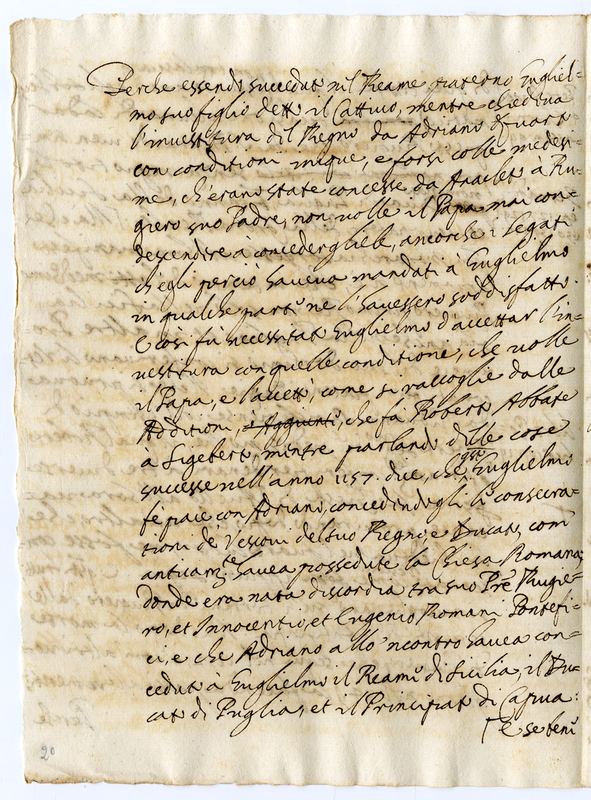 Perche essendo succeduto nel Reame paterno Guglielmo
mo suo figlio detto il Cattivo, mentre chiedeva
l'investitura del Regno da Adriano Quarto
con conditioni inique, e forsi colle medesi=
me, ch'erano state concesse da Anacleto à Ru=
giero suo Padre, non volle il Papa mai con=
descendere à concedergliele, ancorche i Legati
ch'egli perciò haveva mandati à Guglielmo
in qualche parte ne l'havessero soddisfatto.
E così fù necessitato Guglielmo d'accettar l'in=
vestitura con quelle conditione, che volle
il Papa, e l'accettò, come si raccoglie dalle
Additioni, ò Aggiunti, che fà Roberto Abbate
à Sigeberto, mentre parlando delle cose
successe nell'anno 1157. dice, che qsto Guglielmo
fè pace con Adriano, concedendogli le consecra=
tioni de' Vescovi del suo Regno, e Ducato, com'
anticamte havea possedute la Chiesa Romana,
donde era nata discordia tra suo Pre Rugie=
ro, et Innocentio, et Eugenio Romani Pontefi=
ci, e che Adriano allo 'ncontro havea con=
ceduto à Guglielmo il Reame di Sicilia, il Du=
cato di Puglia, et il Principato di Capua:
E se bene
20